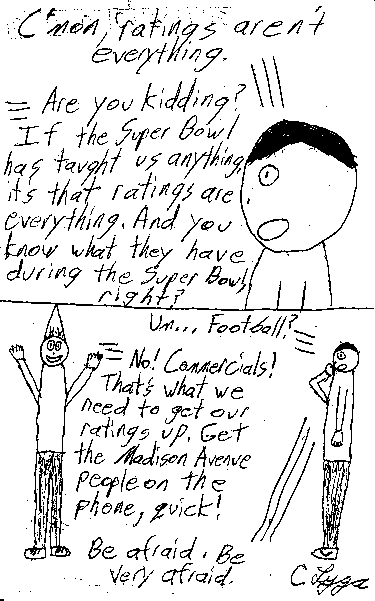 C'mon, ratings aren't
everything.
Are you kidding?
If the Super Bowl
has taught us anything,
it's that ratings are
everything. And you
know what they have
during the Super Bowl,
right?
Um... Football?
No! Commercials!
That's what we
need to get our
ratings up. Get
the Madison Avenue
people on the
phone, quick!
Be afraid. Be
very afraid.
C. Lyga